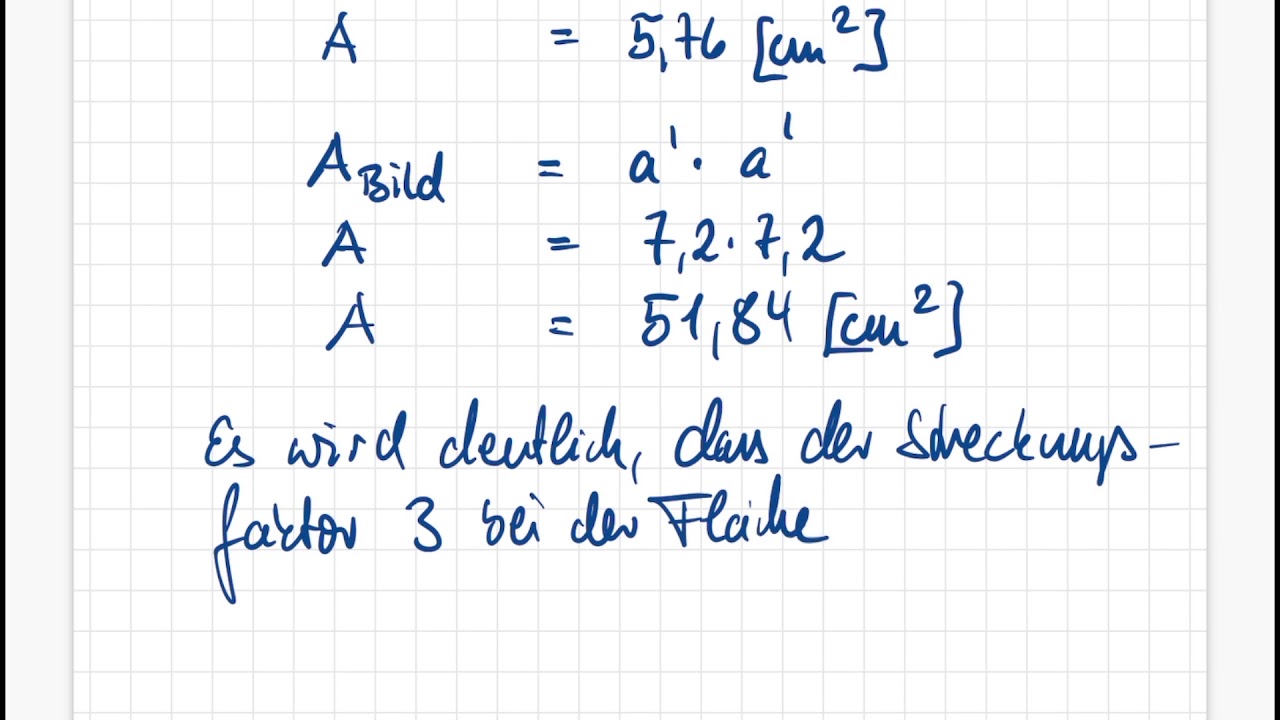 A = 5,76 [cm²]
A Bild = a' · a'
A = 7,2 · 7,2
A = 51,84 [cm²]
Es wird deutlich, dass der Streckungs-
faktor 3 bei der Fläche